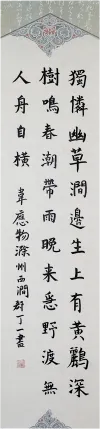 獨憐幽草澗邊生上有黃鸝深
樹鳴春潮帶雨晚来急野渡無
人舟自橫
韋應物滁州西澗 丁一書